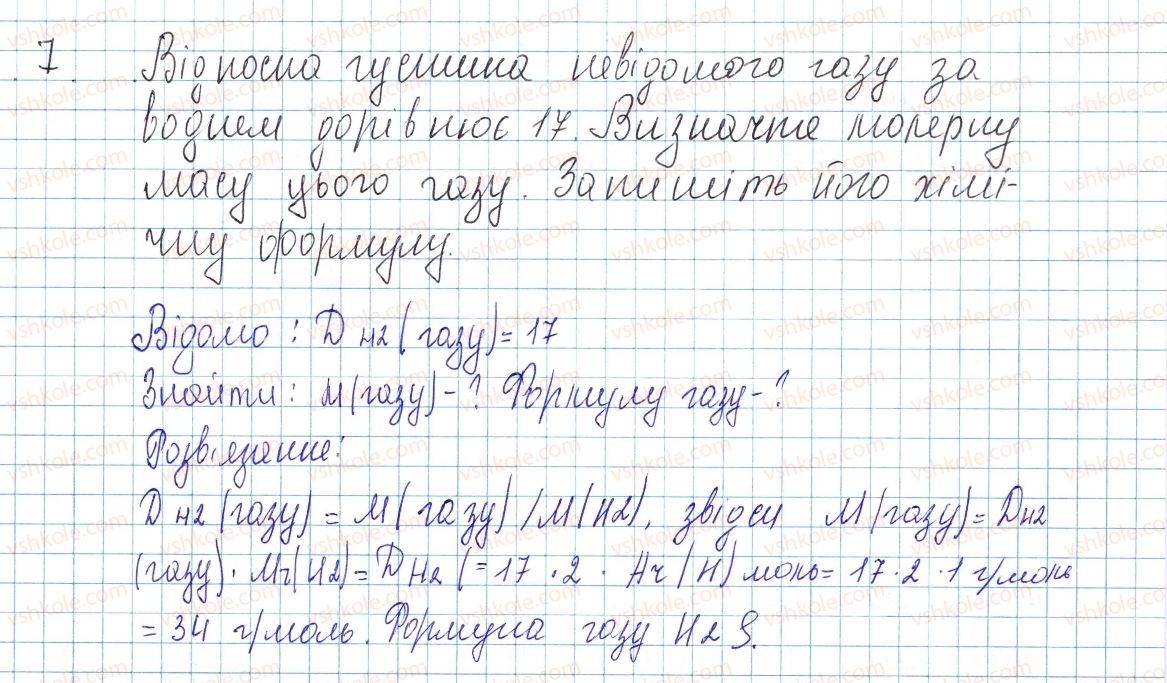 7. Відносна густина невідомого газу за
воднем дорівнює 17. Визначте молерну
масу цього газу. Запишіть його хімі-
чну формулу.
Відомо: D H2 (газу) = 17
Знайти: M(газу) - ? Формулу газу - ?
Розв'язання:
D H2 (газу) = M(газу) / M(H2), звідси M(газу) = D H2
(газу) · Mr(H2) = D H2 (= 17 · 2 · Ar(H) моль = 17 · 2 · 1 г/моль
= 34 г/моль. Формула газу H2S.